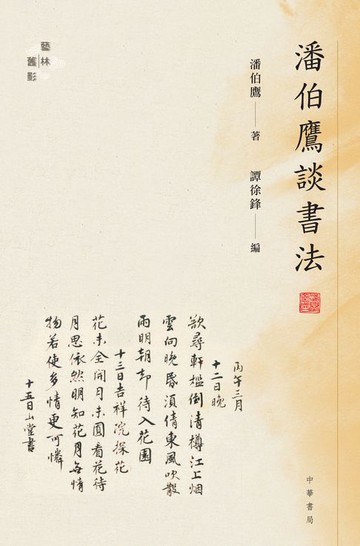 潘伯鷹談書法
潘伯鷹——著
譚徐鋒——編
藝林
舊影
丙午三月
十二日晚
欲尋軒檻倒清樽江上烟
雲向晚昏須倩東風吹散
雨明朝却待入花園
十三日吉祥院探花
花未全開月未圓看花待
月思依然明知花月無情
物若使多情更可憐
十五日山堂書
中華書局